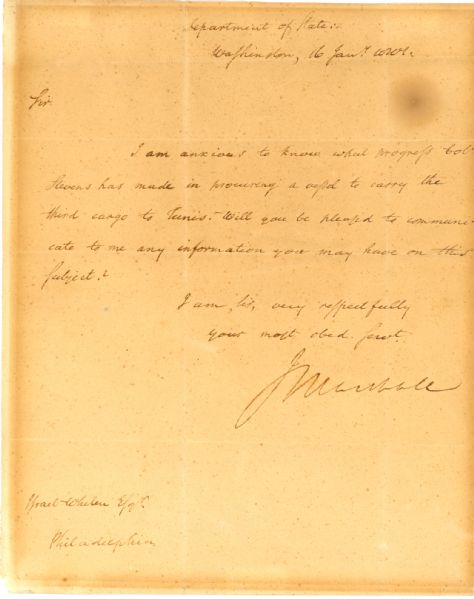 Department of State.
Washington, 16 Jany. 1801.
Sir
I am anxious to know what progress Col
Stevens has made in procuring a vessel to carry the
third cargo to Tunis. Will you be pleased to communi-
cate to me any information you may have on this
subject.
I am, Sir, very respectfully
your most obed. servt.
J Marshall
Israel Whelen Esqr.
Philadelphia